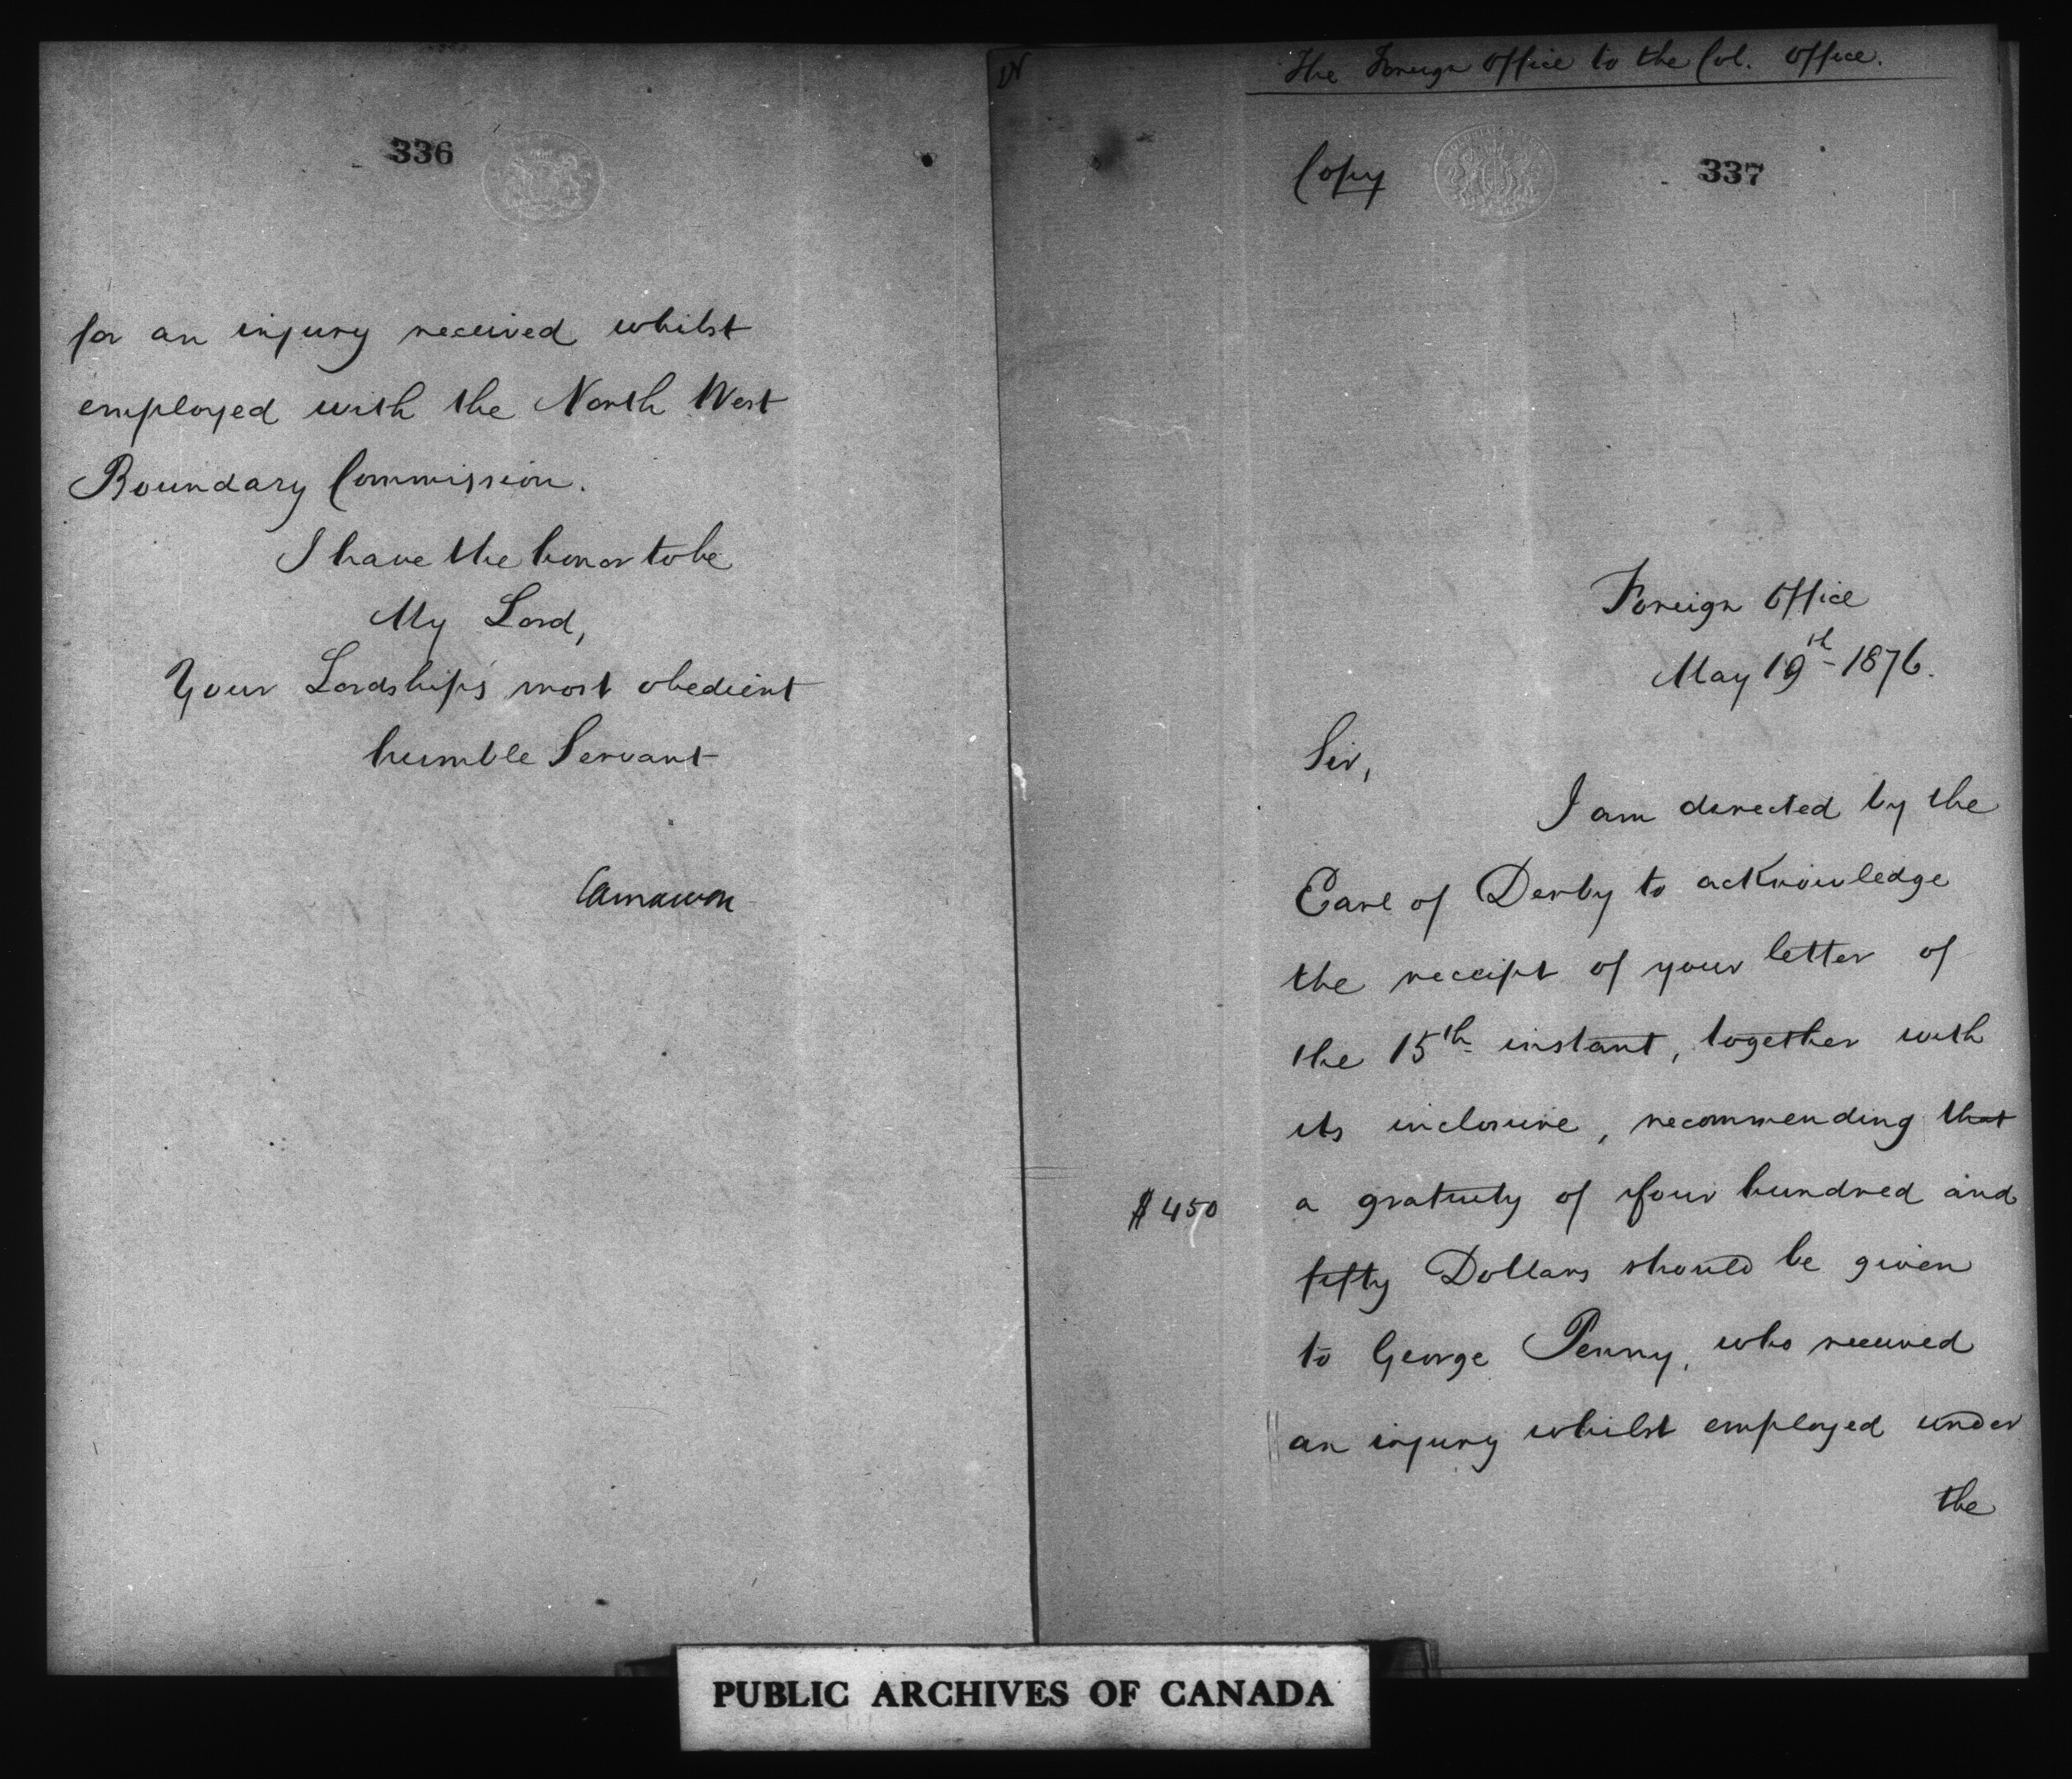 336
for an injury received whilst
employed with the North West
Boundary Commission.
I have the honor to be
My Lord,
Your Lordship's most obedient
humble Servant
Carnarvon
The Foreign Office to the Col. Office.
Copy
337
Foreign Office
May 19th 1876.
Sir,
I am directed by the
Earl of Derby to acknowledge
the receipt of your letter of
the 15th instant, together with
its inclosure, recommending that
$450
a gratuity of four hundred and
fifty Dollars should be given
to George Penny, who received
an injury whilst employed under
the
PUBLIC ARCHIVES OF CANADA